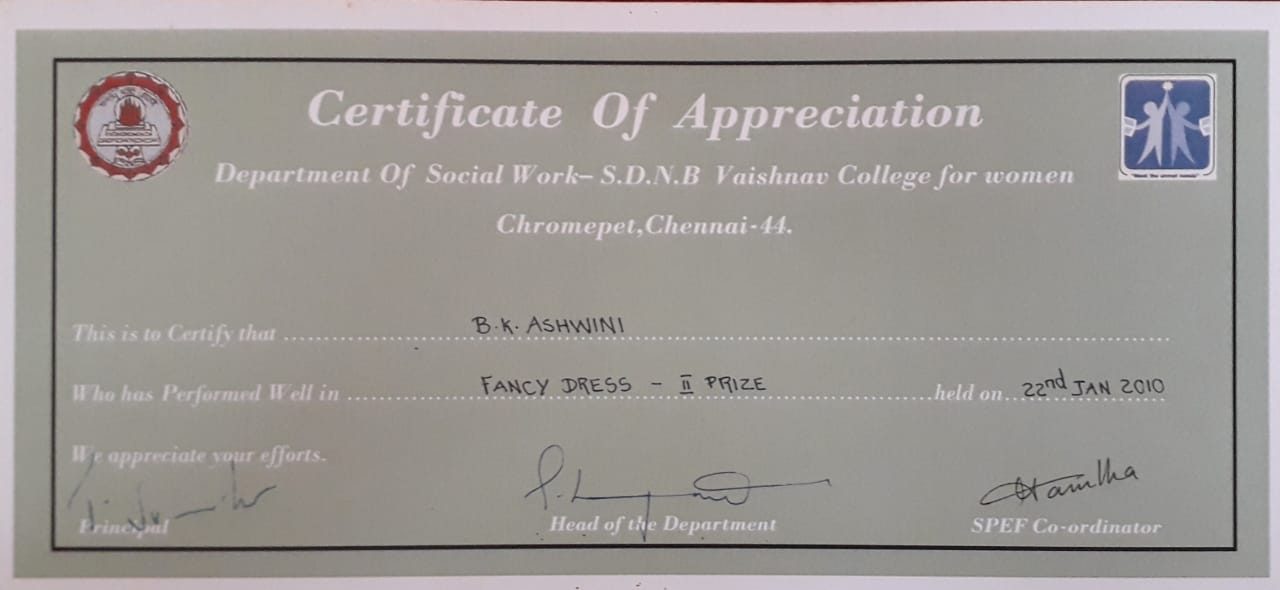 Certificate Of Appreciation
Department Of Social Work- S.D.N.B Vaishnav College for women
Chromepet,Chennai-44.
This is to Certify that B.K. ASHWINI
Who has Performed Well in FANCY DRESS - II PRIZE held on 22nd JAN 2010
We appreciate your efforts.
Principal Head of the Department SPEF Co-ordinator